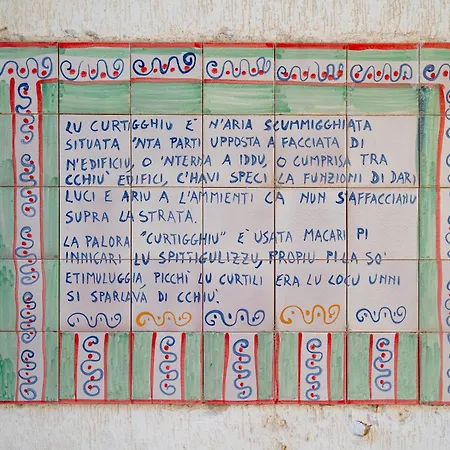 LU CURTIGGHIU E' N'ARIA SCUMMIGGHIATA
SITUATA 'NTA PARTI UPPOSTA A FACCIATA DI
N'EDIFICIU, O 'NTERNA A IDDU, O CUMPRISA TRA
CCHIU' EDIFICI, C'HAVI SPECI LA FUNZIONI DI DARI
LUCI E ARIU A L'AMMIENTI CA NUN S'AFFACCIANU
SUPRA LA STRATA.
LA PALORA "CURTIGGHIU" E' USATA MACARI PI
INNICARI LU SPITTIGULIZZU, PROPIU PI LA SO'
ETIMULUGGIA PICCHÌ LU CURTILI ERA LU LOCU UNNI
SI SPARLAVA DI CCHIU'.